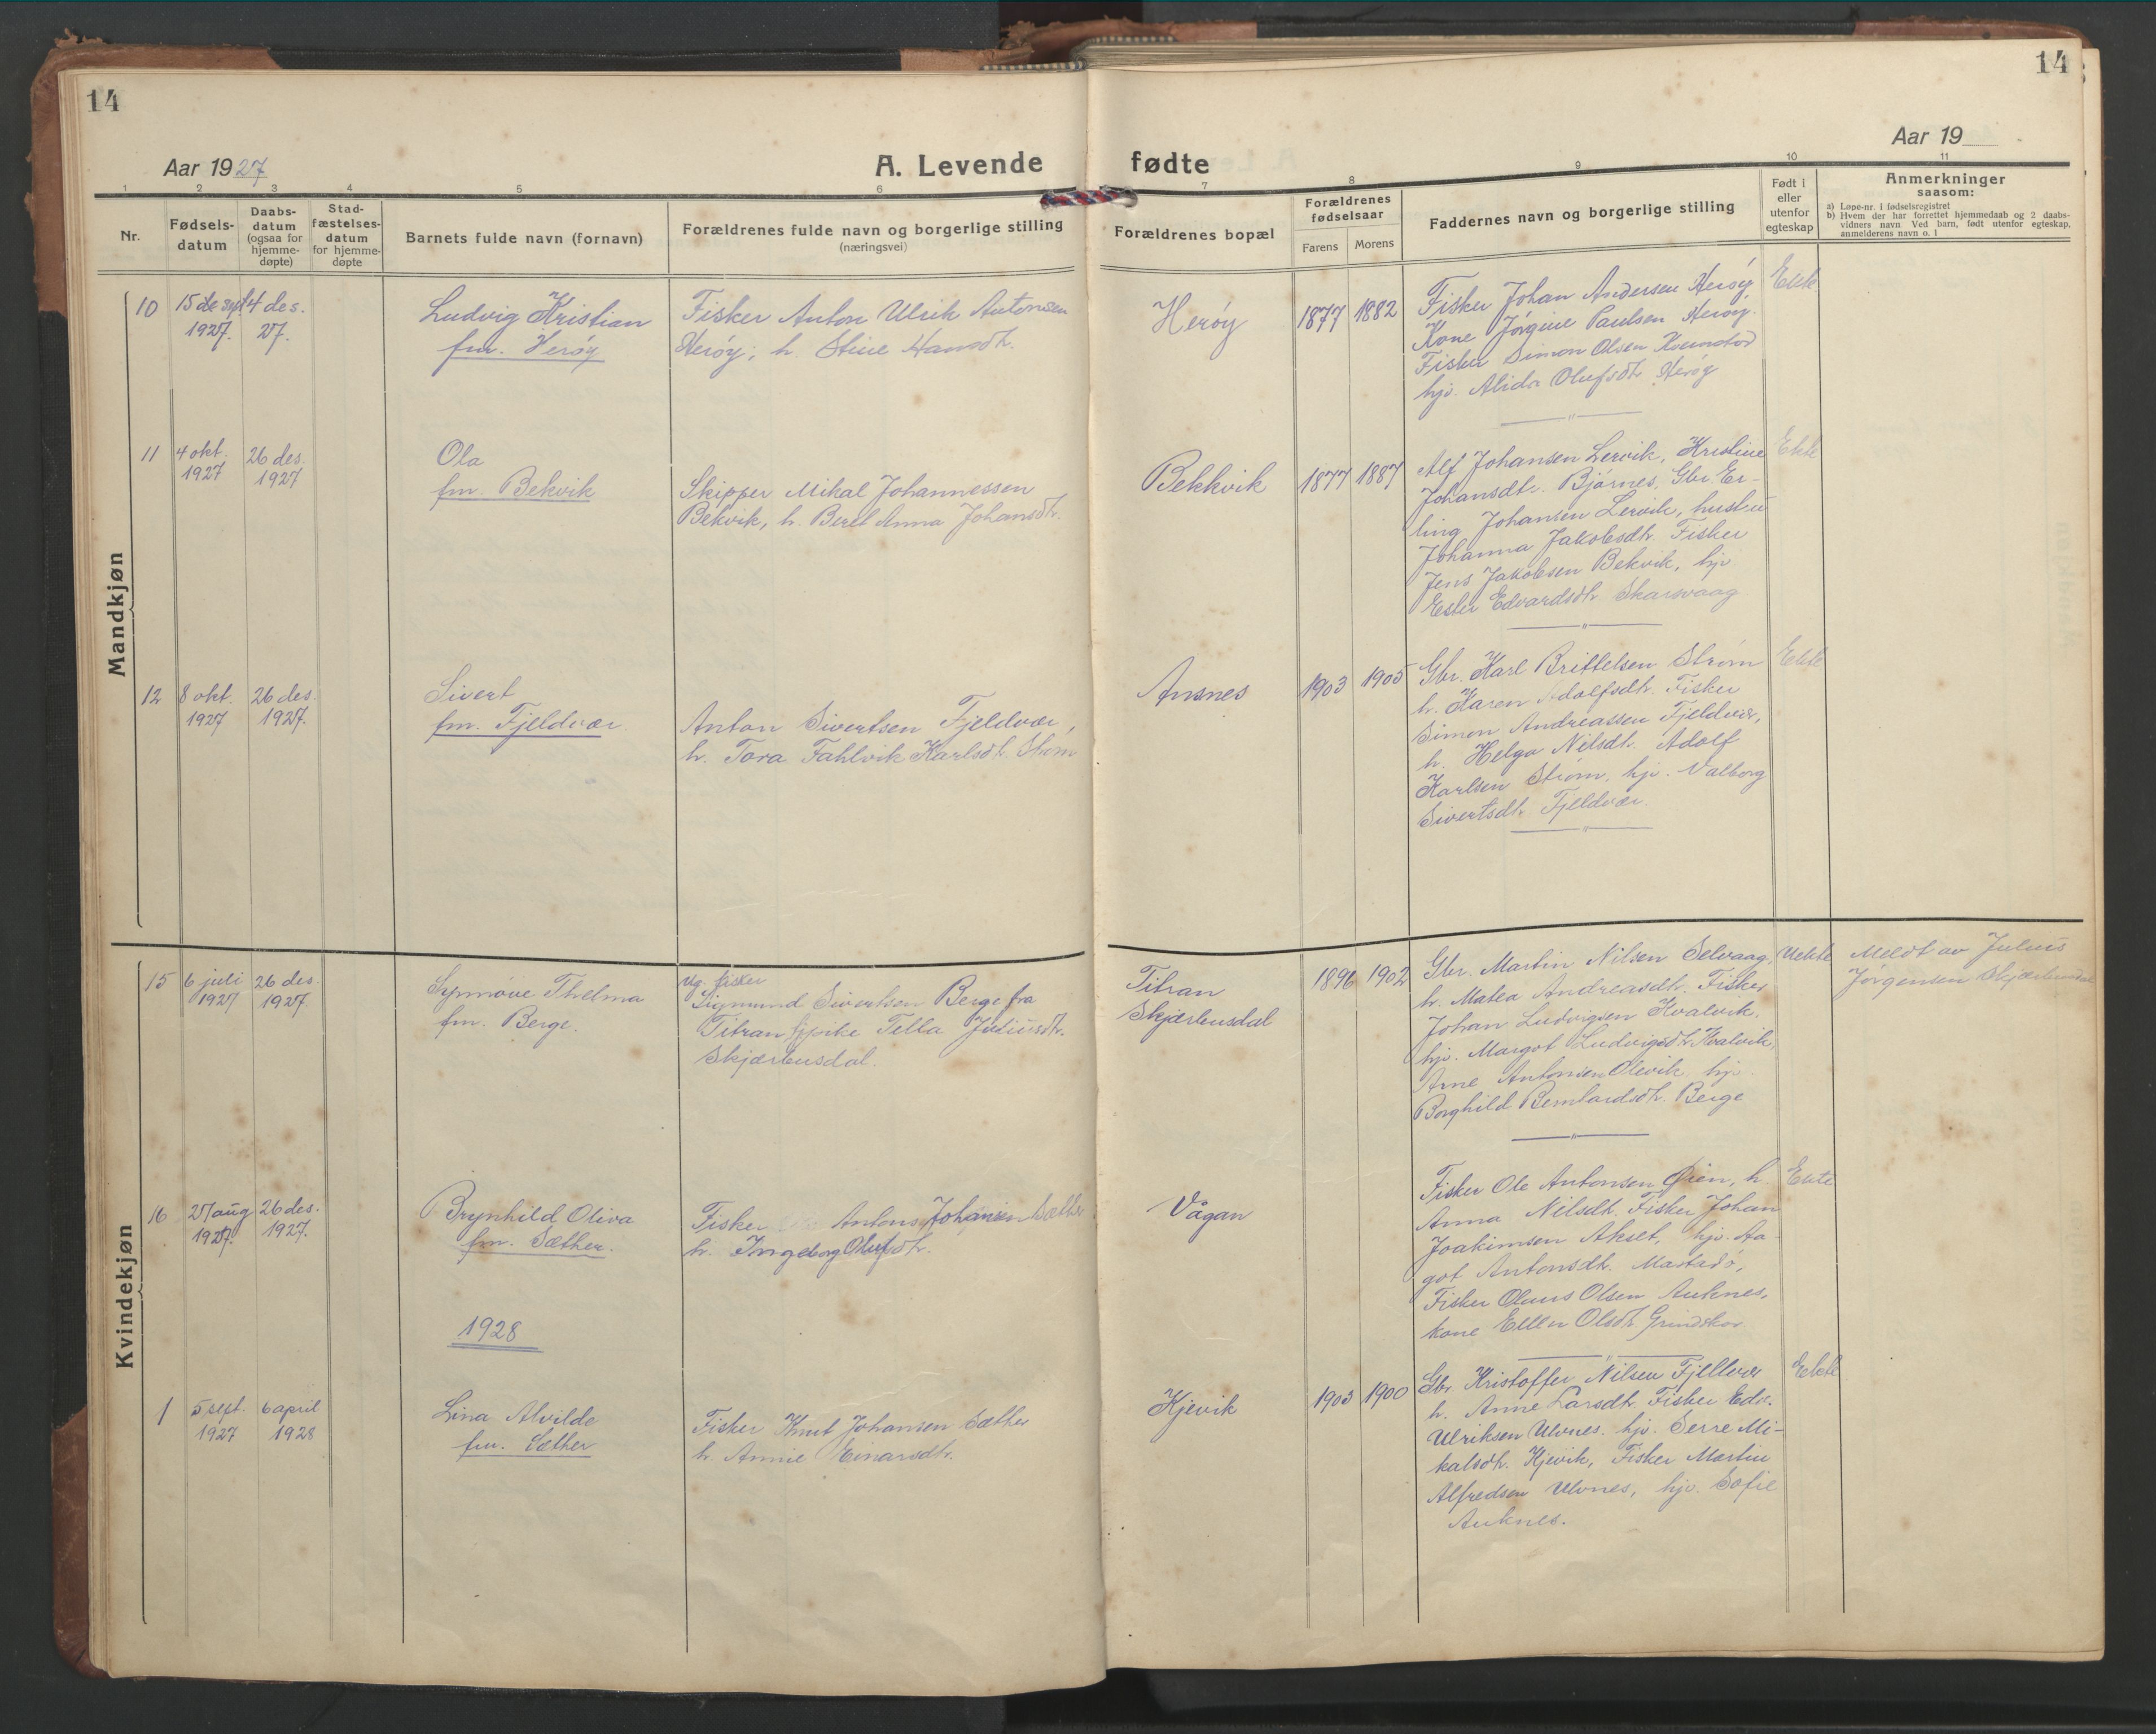 14
14
Aar 1927
A. Levende fødte
Aar 19
1 2 3 4 5 6 7 8 9 10 11
Nr.
Fødsels-
datum
Daabs-
datum
(ogsaa for
hjemme-
døpte)
Stad-
fæstelses-
datum
for hjemme-
døpte
Barnets fulde navn (fornavn)
Forældrenes fulde navn og borgerlige stilling
(næringsvei)
Forældrenes bopæl
Forældrenes
fødselsaar
Farens Morens
Faddernes navn og borgerlige stilling
Født i
eller
utenfor
egteskap
Anmerkninger
saasom:
a) Løpe-nr. i fødselsregistret
b) Hvem der har forrettet hjemmedaab og 2 daabs-
vidners navn. Ved barn, født utenfor egteskap,
anmelderens navn o. l
Mandkjøn
10
15de sept
1927.
4 des.
27.
Ludvig Kristian
fm. Herøy
Fisker Anton Ulrik Antonsen
Herøy, h. Stine Hansdtr.
Herøy
1877 1882
Fisker Johan Andersen Herøy
Kone Jørgine Paulsen Herøy.
Fisker Simon Olsen
hjv. Alida Olufsdtr Herøy
Ekte
11
4 okt.
1927
26 des.
1927
Ola
fm. Bekvik
Skipper Mikal Johannessen
Bekvik, h. Beret Anna Johansdtr.
Bekkvik
1877 1887
Alf Johansen Lervik, Kristine
Johansdtr. Bjørnes, Gbr. Er-
ling Johansen Lervik, hustru
Johanna Jakobsdtr. Fisker
Jens Jakobsen Bekvik, hjv
Ester Edvardsdtr Skarsvaag
Ekte
12
8 okt.
1927
26 des.
1927.
Sivert
fm. Fjeldvær
Anton Sivertsen Fjeldvær,
h. Tora Fahlvik Karlsdtr Strøm
Ansnes
1903 1905
Gbr. Karl Brittelsen Strøm
h. Karen Adolfsdtr. Fisker
Simon Andreassen Fjeldvær,
h. Helga Nilsdtr. Adolf
Karlsen Strøm, hjv. Valborg
Sivertsdtr. Fjeldvær.
Ekte
Kvindekjøn
15
6 juli
1927
26 des.
1927
Synnøve Thelma
fm. Berge.
Ug. fisker
Sigmund Sivertsen Berge fra
Titran, pike Tella Juliusdtr.
Skjærbusdal.
Titran
Skjærbusdal
1896 1902
Gbr. Martin Nilsen Selvaag,
h. Matea Andreasdtr. Fisker
Johan Ludvigsen Kvalvik,
hjv. Margot Ludvigsdtr. Kvalvik,
Arne Antonsen Olevik, hjv.
Borghild Bernhardsdtr. Berge
Uekte
Meldt av Julius
Jørgensen Skjærbusdal
16
27 aug
1927.
26 des.
1927.
Brynhild Oliva
fm. Sæther.
Fisker Antons Johansen Sæther
h. Ingeborg Olufsdtr.
Vågan
Fisker Ole Antonsen Øien, h.
Anna Nilsdtr. Fisker Johan
Joakimsen Akset, hjv. Aa-
got Antonsdtr.
Fisker Olaus Olsen Auknes,
kone Ellen Olsdtr
Ekte
1928
1
5 sept.
1927
6 april
1928
Lina Alvilde
fm. Sæther
Fisker Knut Johansen Sæther
h. Annie Einarsdtr.
Kjevik
1903 1900
Gbr Kristoffer Nilsen Fjellvær
h. Anne Larsdtr. Fisker Edv.
Ulriksen Ulvnes. hjv. Serre Mi-
kalsdtr. Kjevik, Fisker Martin
Alfredsen Ulvnes, hjv. Sofie
Auknes.
Ekte